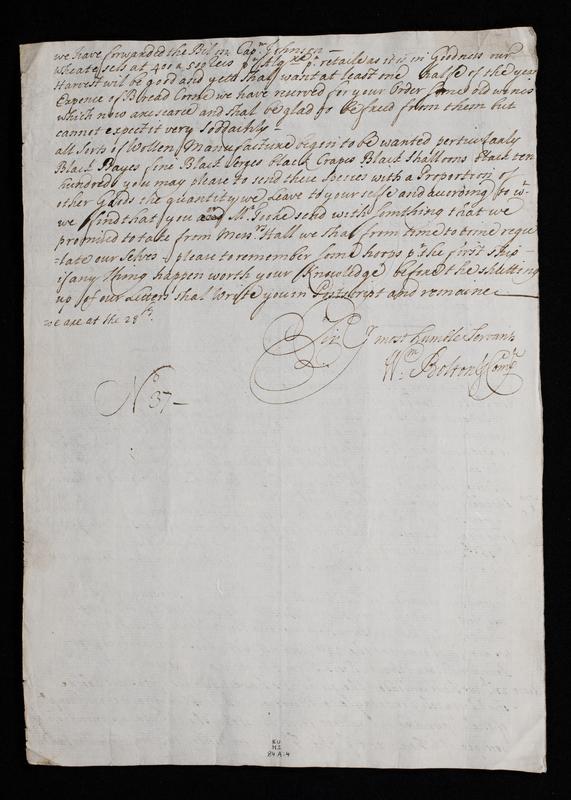 we have forwarded the Bil in Capn. Johnson —
Wheate sels at 400 a 550 Reis pr retaile as it is in Goodness our
Harvest wil be good and yett shal want at least one halfe of the year
Expence of Bread Corne we have reserved for your Order some old wines
which now are scarce and shal be glad to be freed from them but
cannot expect it very Soddainly —
all Sorts of Wollen Manufacture begin to be wanted perticularly
Black Bayes fine Black Serges black Crapes Black Shalloons Black ten
hundreds you may please to send these Species with a Proportion of
other Goods the quantity we Leave to your selfe and according to wt.
we find that you and Mr. send with somthing that we
promised to take from Messrs Hall we shal from time to time regu
-late our selves please to remember some hoops pr the first ship
if any thing happen worth your Knowledge before the shutting
up of our Letters shal Write you in Postscript and remaine —
we are at the 28th.
Sir Yr most humble Servants
Wm. Bolton & Compa
No 37 —
KU
M:2
84 A:4